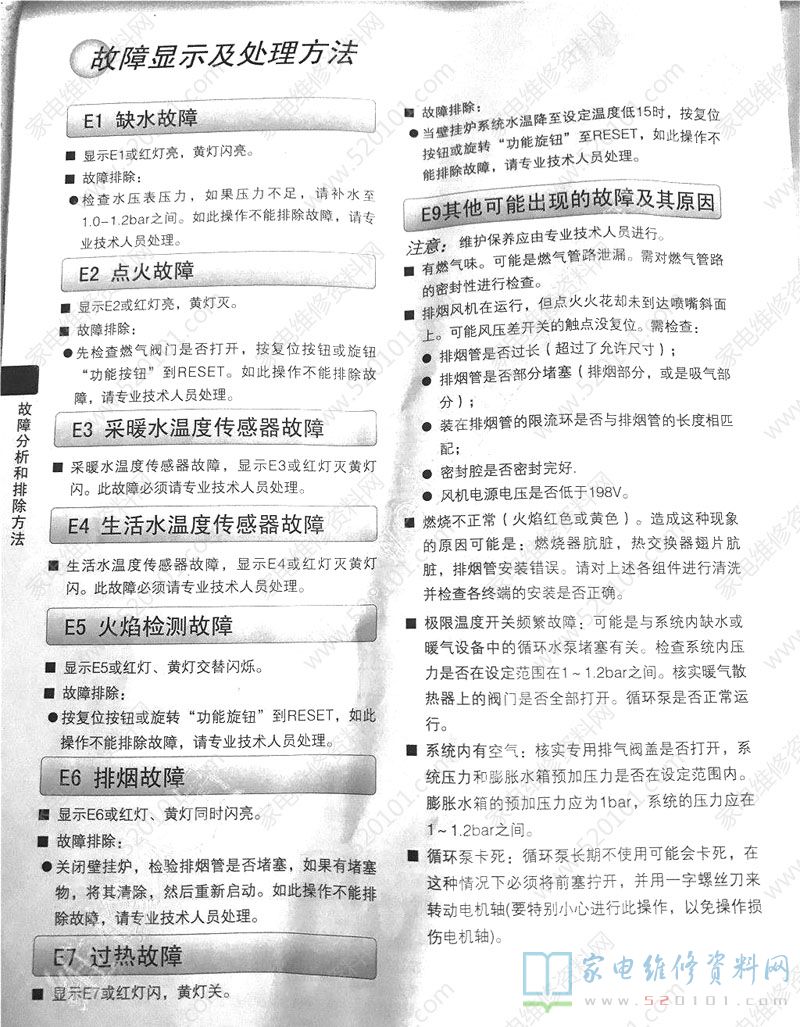 故障显示及处理方法
E1 缺水故障
■ 显示E1或红灯亮，黄灯闪亮。
■ 故障排除：
●检查水压表压力，如果压力不足，请补水至
1.0-1.2bar之间。如此操作不能排除故障，请专
业技术人员处理。
E2 点火故障
■ 显示E2或红灯亮，黄灯灭。
■ 故障排除：
●先检查燃气阀门是否打开，按复位按钮或旋钮
“功能按钮”到RESET。如此操作不能排除故
障，请专业技术人员处理。
E3 采暖水温度传感器故障
■ 采暖水温度传感器故障，显示E3或红灯灭黄灯
闪。此故障必须请专业技术人员处理。
E4 生活水温度传感器故障
■ 生活水温度传感器故障，显示E4或红灯灭黄灯
闪。此故障必须请专业技术人员处理。
E5 火焰检测故障
■ 显示E5或红灯、黄灯交替闪烁。
■ 故障排除：
●按复位按钮或旋转“功能旋钮”到RESET，如此
操作不能排除故障，请专业技术人员处理。
E6 排烟故障
■ 显示E6或红灯、黄灯同时闪亮。
■ 故障排除：
●关闭壁挂炉，检验排烟管是否堵塞，如果有堵塞
物，将其清除，然后重新启动。如此操作不能排
除故障，请专业技术人员处理。
E7 过热故障
■ 显示E7或红灯闪，黄灯关。
故障分析和排除方法
■ 故障排除：
●当壁挂炉系统水温降至设定温度低15时，按复位
按钮或旋转“功能旋钮”至RESET，如此操作不
能排除故障，请专业技术人员处理。
E9其他可能出现的故障及其原因
注意：维护保养应由专业技术人员进行。
■ 有燃气味。可能是燃气管路泄漏。需对燃气管路
的密封性进行检查。
■ 排烟风机在运行，但点火火花却未到达喷嘴斜面
上。可能风压差开关的触点没复位。需检查：
● 排烟管是否过长（超过了允许尺寸）；
● 排烟管是否部分堵塞（排烟部分，或是吸气部
分）；
● 装在排烟管的限流环是否与排烟管的长度相匹
配；
● 密封腔是否密封完好.
● 风机电源电压是否低于198V。
■ 燃烧不正常（火焰红色或黄色）。造成这种现象
的原因可能是：燃烧器肮脏，热交换器翅片肮
脏，排烟管安装错误。请对上述各组件进行清洗
并检查各终端的安装是否正确。
■ 极限温度开关频繁故障：可能是与系统内缺水或
暖气设备中的循环水泵堵塞有关。检查系统内压
力是否在设定范围在1~1.2bar之间。核实暖气散
热器上的阀门是否全部打开。循环泵是否正常运
行。
■ 系统内有空气：核实专用排气阀盖是否打开，系
统压力和膨胀水箱预加压力是否在设定范围内。
膨胀水箱的预加压力应为1bar，系统的压力应在
1~1.2bar之间。
■ 循环泵卡死：循环泵长期不使用可能会卡死，在
这种情况下必须将前塞拧开，并用一字螺丝刀来
转动电机轴(要特别小心进行此操作，以免操作损
伤电机轴)。
家电维修资料网
www.520101.com